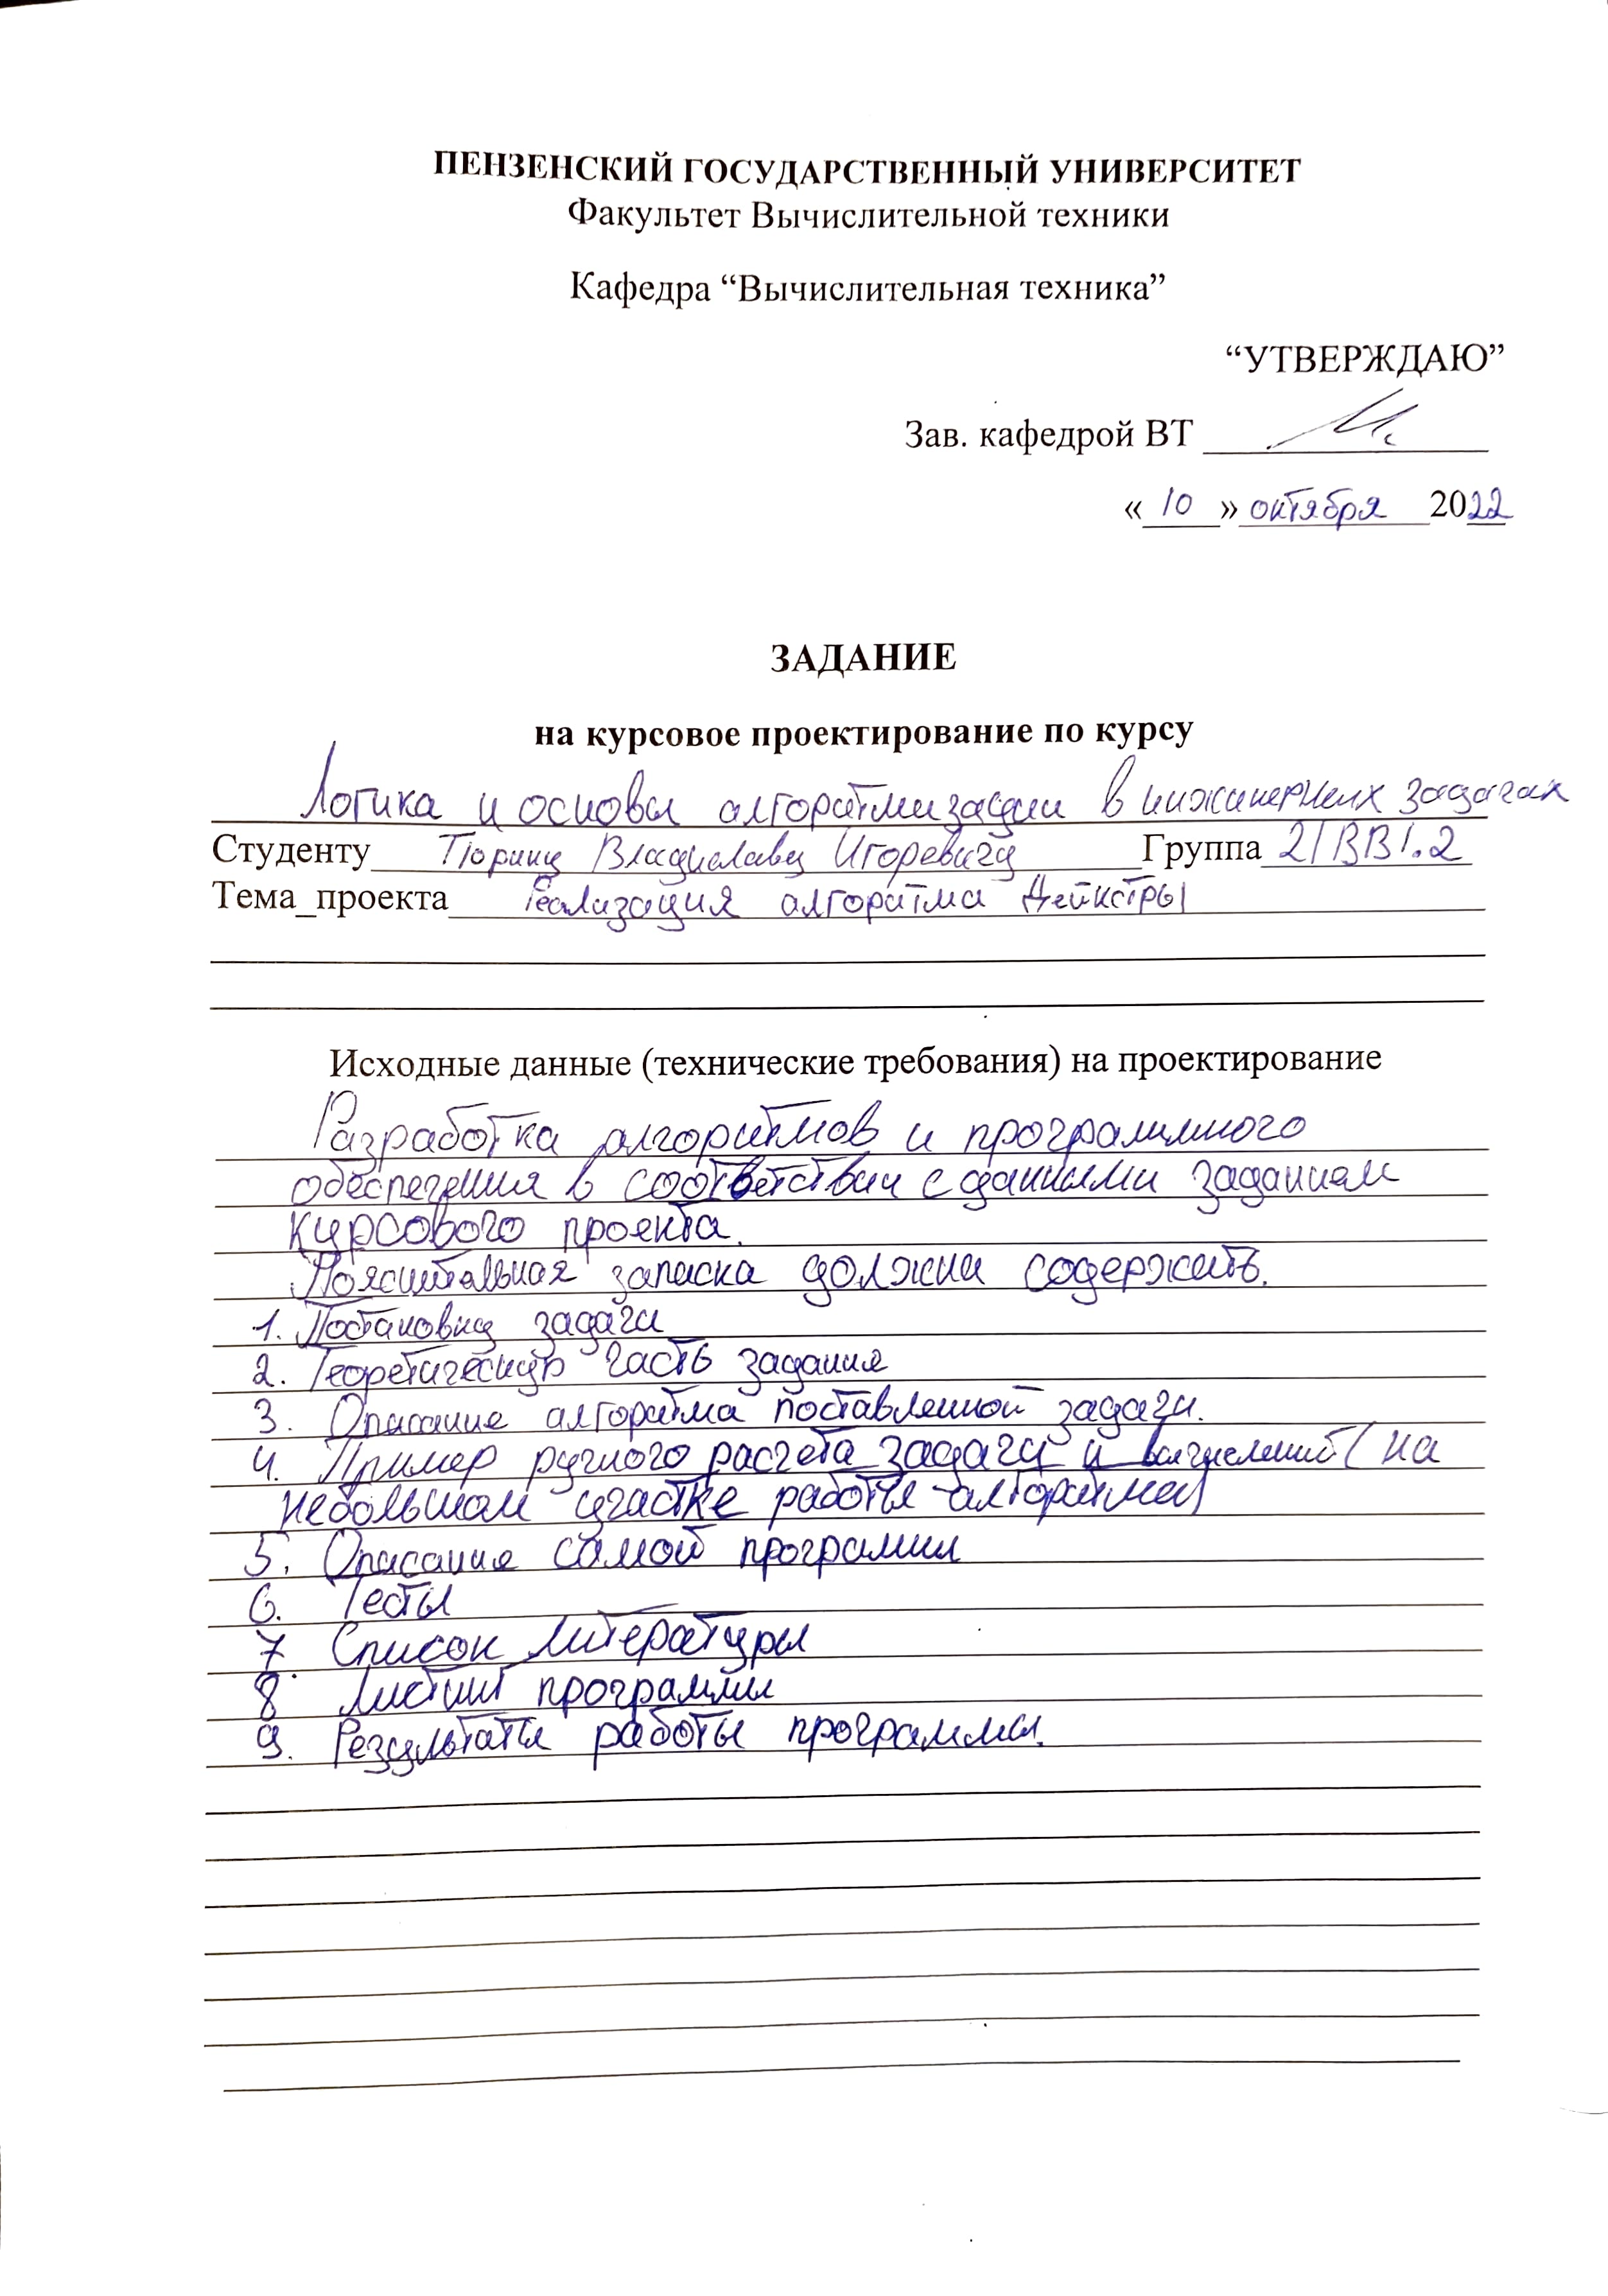 ПЕНЗЕНСКИЙ ГОСУДАРСТВЕННЫЙ УНИВЕРСИТЕТ
Факультет Вычислительной техники
Кафедра “Вычислительная техника”
“УТВЕРЖДАЮ”
Зав. кафедрой ВТ
«10» октября 2022
ЗАДАНИЕ
на курсовое проектирование по курсу
Логика и основы алгоритмизации в инжинерных задачах
Студенту Тюрину Владиславу Игоревичу Группа 21ВВ1.2
Тема_проекта Реализация алгоритма Дейкстры
Исходные данные (технические требования) на проектирование
Разработка алгоритмов и программного
обеспечения в соответствии с данными заданием
курсового проекта.
Пояснительная записка должна содержать.
1. Постановку задачи
2. Теоретическую часть задания
3. Описание алгоритма поставленной задачи.
4. Пример ручного расчета задачи и вычислений (на
небольшом участке работы алгоритма)
5. Описание самой программы
6. Тесты
7. Список литературы
8. Листинг программы
9. Результаты работы программы.